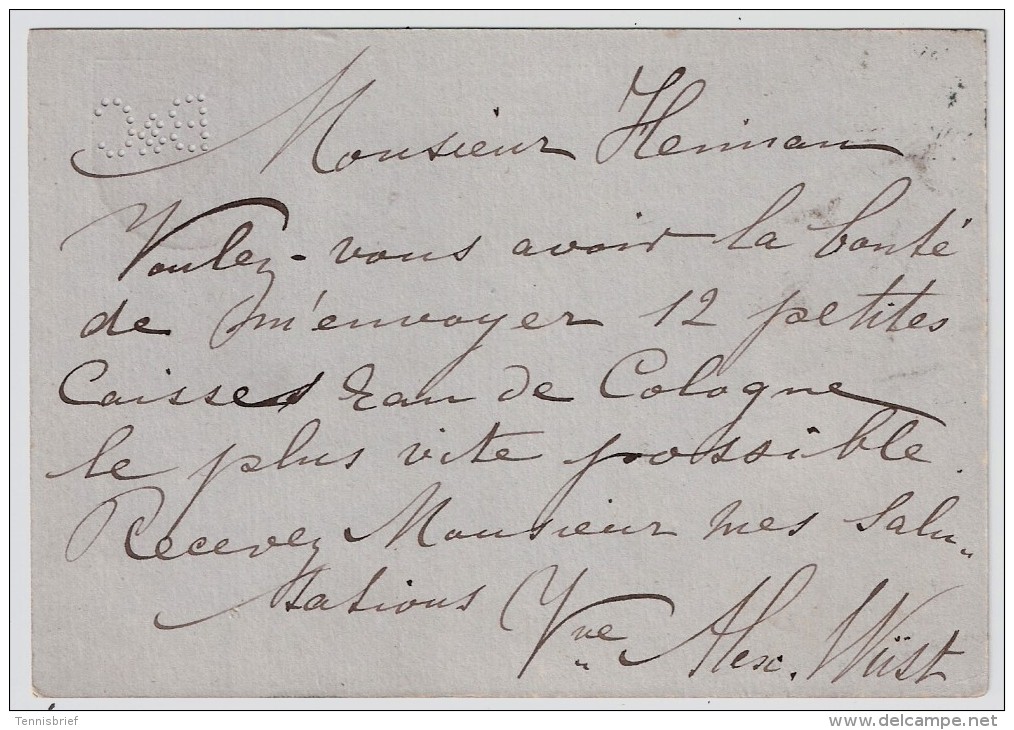 Monsieur Heiman
Voulez-vous avoir la bonté
de m'envoyer 12 petites
Caisses Eau de Cologne
le plus vite possible.
Recevez Monsieur mes Salu-
tations Vve Alex. Wüst
Tennisbrief
www.delcampe.net